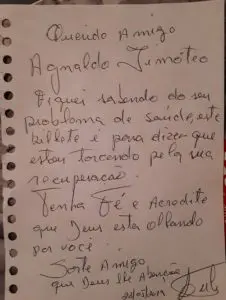 Querido Amigo
Agnaldo Timóteo
Fiquei sabendo do seu
problema de saúde, este
billete é para dizer que
estou torcendo pela sua
recuperação.
Tenha Fé e Acredite
que Deus esta ollando
por você.
Sorte Amigo
que Deus lhe Abençõe